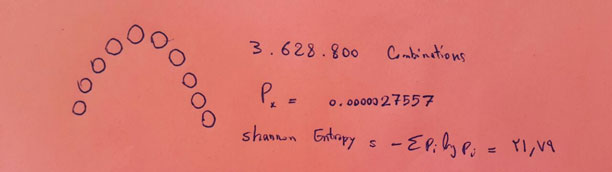 3.628.800 Combinations
Px = 0.0000027557
Shannon Entropy = - Σ Pi log Pi = ۲۱,۷۹